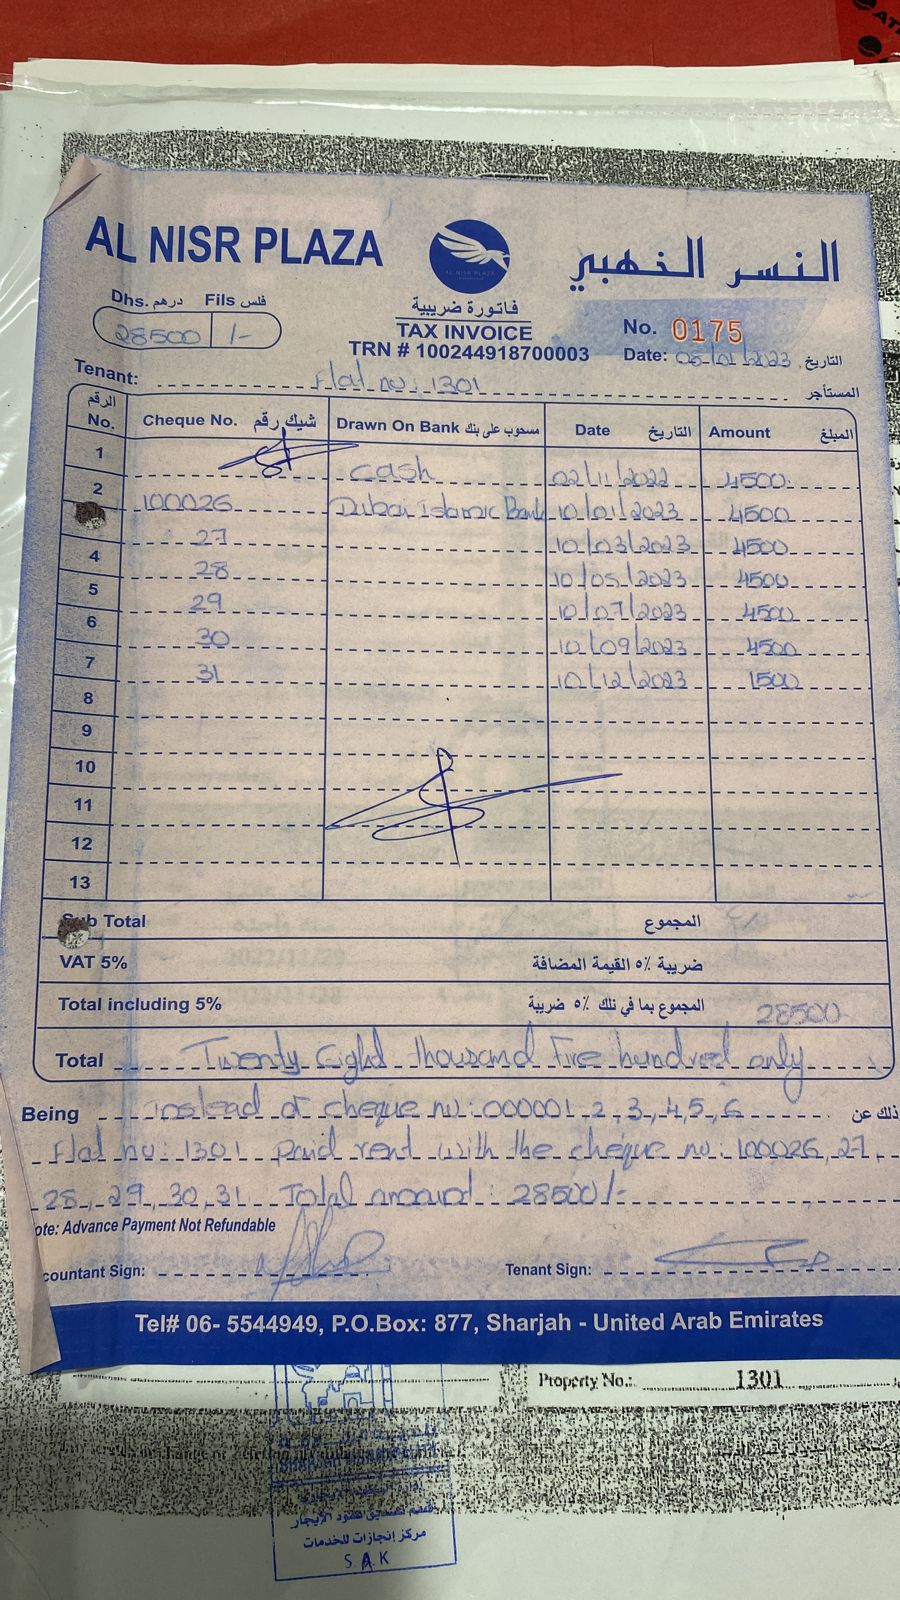 AL NISR PLAZA
النسر الذهبي
AL NISR PLAZA
Dhs. درهم Fils فلس
28500 /-
فاتورة ضريبية
TAX INVOICE
TRN # 100244918700003
No. 0175
Date: 05/01/2023 التاريخ
Tenant: Flat no: 1301 المستأجر
الرقم No. Cheque No. شيك رقم Drawn On Bank مسحوب على بنك Date التاريخ Amount المبلغ
1 cash 02/11/2022 4500
2 100026 Dubai islamic Bank 10/01/2023 4500
27 10/03/2023 4500
4 28 10/05/2023 4500
5 29 10/07/2023 4500
6 30 10/09/2023 4500
7 31 10/12/2023 1500
8
9
10
11
12
13
Sub Total المجموع
VAT 5% ضريبة ٥٪ القيمة المضافة
Total including 5% المجموع بما في ذلك ٥٪ ضريبة 28500
Total Twenty Eight thousand Five hundred only
Being instead of cheque no: 000001, 2, 3, 4, 5, 6 ذلك عن
Flat no: 1301 paid rent with the cheque no: 100026, 27,
28, 29, 30, 31 Total amount: 28500/-
ote: Advance Payment Not Refundable
countant Sign: Tenant Sign:
Tel# 06- 5544949, P.O.Box: 877, Sharjah - United Arab Emirates
Property No.: 1301
قسم تصديق عقود الإيجار
مركز إنجازات للخدمات
S.A.K